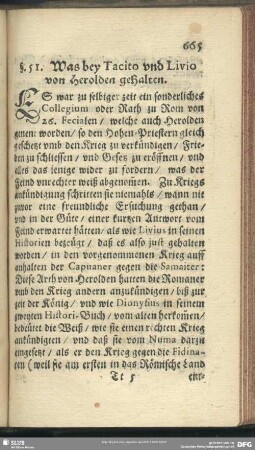 665
§. 51. Was bey Tacito vnd Livio
von Herolden gehalten.
ES war zu selbiger zeit ein sonderliches
Collegium oder Rath zu Rom von
26. Fecialen / welche auch Herolden
genen̄t worden / so den Hohen-Priestern gleich
geschetzt vnd den Krieg zu verkündigen / Frie-
den zu schliessen / vnd Gesetz zu eröffnen / vnd
alles das jenige wider zu fordern / was der
Feind vnrechter weiß abgenom̄en. Zu Kriegs
ankündigung schritten sie niemahls / wann nit
zuvor eine freundliche Ersuchung gethan /
vnd in der Güte / einer kurtzen Antwort vom
Feind erwartet hätten / als wie Livius in seinen
Historien bezeugt / daß es also just gehalten
worden / in den vorgenommenen Krieg auff
anhalten der Capuaner gegen die Samniter:
Diese Arth von Herolden hatten die Romaner
vnd den Krieg andern anzukündigen / biß zur
zeit der König / vnd wie Dionysius in seinem
zweyten Histori-Buch / vom alten herkom̄en /
bedeutet die Weiß / wie sie einen rechten Krieg
ankündigten / vnd daß sie vom Numa darzu
eingesetzt / als er den Krieg gegen die Fidina-
ten (weil sie am ersten in das Römische Land
Tt 5